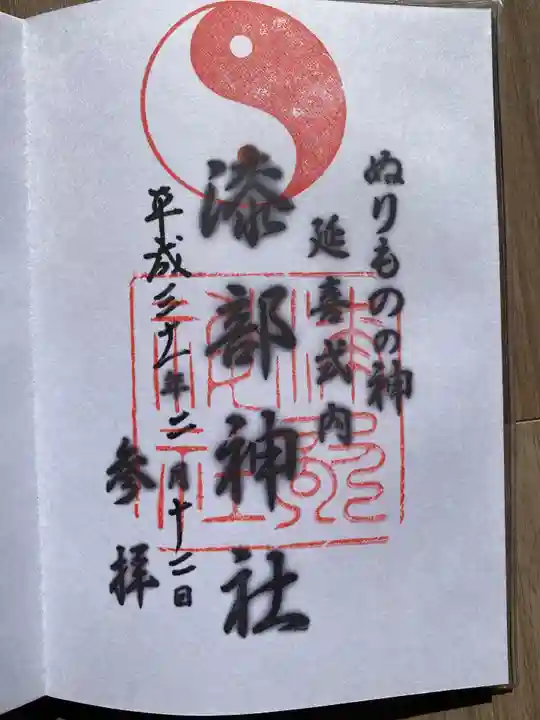 ぬりものの神
延喜式内
漆部神社
平成三十一年二月十二日
参拝